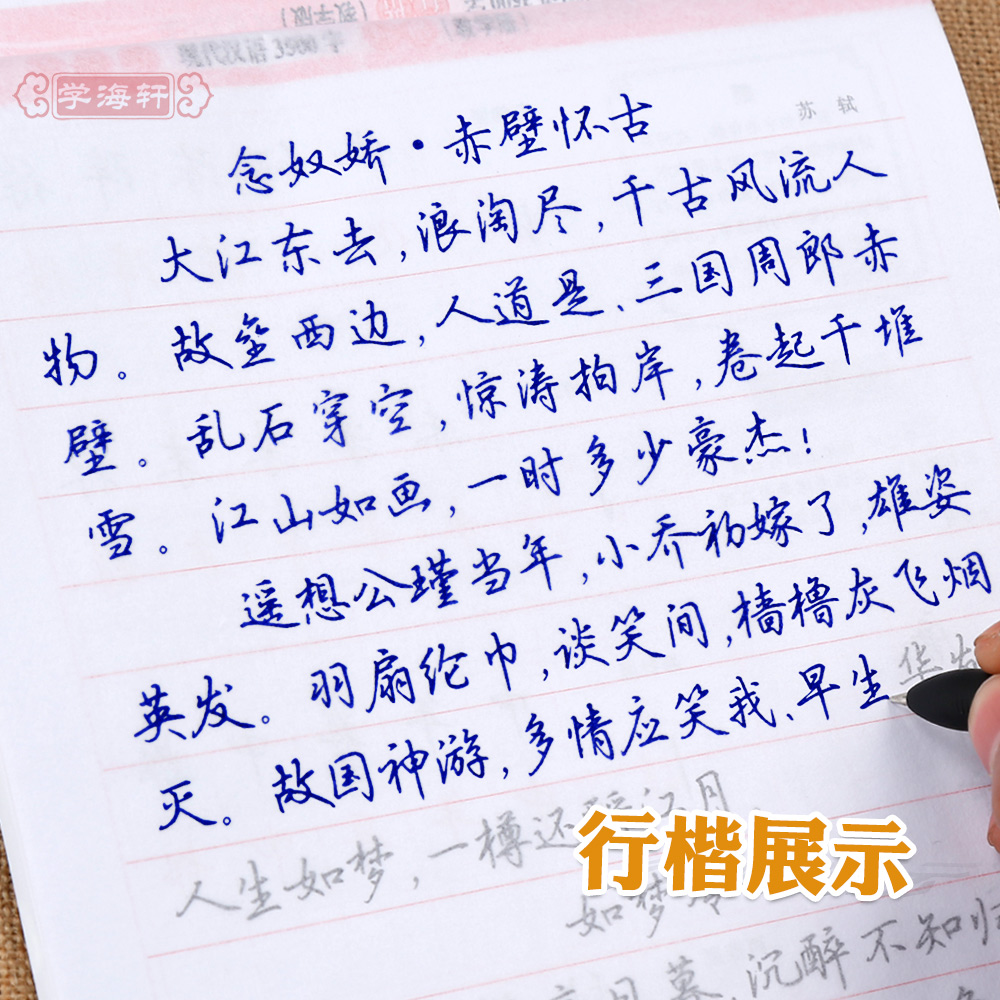 现代汉语3500字
学海轩
苏轼
念奴娇·赤壁怀古
大江东去,浪淘尽,千古风流人
物。故垒西边,人道是、三国周郎赤
壁。乱石穿空,惊涛拍岸,卷起千堆
雪。江山如画,一时多少豪杰!
遥想公瑾当年,小乔初嫁了,雄姿
英发。羽扇纶巾,谈笑间,樯橹灰飞烟
灭。故国神游,多情应笑我、早生华发
人生如梦,一樽还酹江月
行楷展示
如梦令
日暮,沉醉不知归